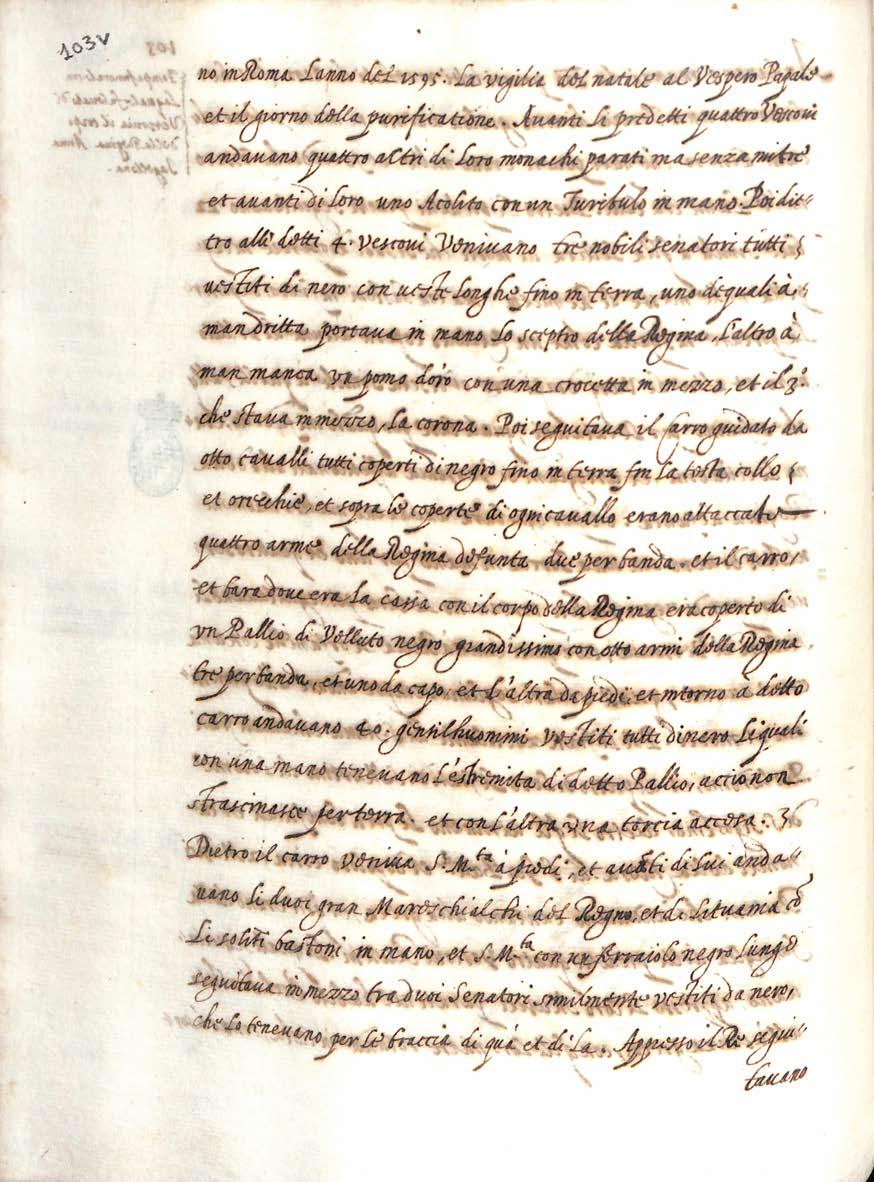 103v
no in Roma L'anno del 1595. La vigilia del natale al Vespero Papale
et il giorno della purificatione. Avanti li predetti quattro Vescovi
andavano quattro altri di loro monachi parati ma senza mitre
et avanti di loro uno Acolito con un Turibulo in mano. Poi die-
tro alli detti 4. Vescovi Venivano tre nobili senatori tutti
vestiti di nero con veste longhe fino in terra, uno de quali à
man dritta portava in mano lo sceptro della Regina, L'altro à
man manca un pomo d'oro con una crocetta in mezzo, et il 3.º
che stava in mezzo, la corona. Poi seguitava il Carro guidato da
otto cavalli tutti coperti di negro fino in terra fin la testa collo
et orecchie, et sopra le coperte di ogni cavallo erano attaccate
quattro arme della Regina defunta due per banda. et il carro,
et bara dove era la cassa con il corpo della Regina era coperto di
un Pallio di Velluto negro grandissimo con otto armi della Regina
tre per banda, et uno da capo, et l'altra da piedi, et intorno à detto
carro andavano 40. gentilhuomini vestiti tutti di nero li quali
con una mano tenevano l'estremita di detto Pallio, accio non
strascinasce per terra. et con l'altra una torcia accesa.
Dietro il carro veniva S. M.ta à piedi, et avãti di lui anda-
vano li duoi gran Mareschialchi del Regno, et di Lituania cõ
Li soliti bastoni in mano, et S. M.ta con un ferraiolo negro lungo
seguitava in mezzo tra duoi Senatori similmente vestiti da nero,
che lo tenevano per le braccia di quà et di là. Appresso il Re segui-
tavano